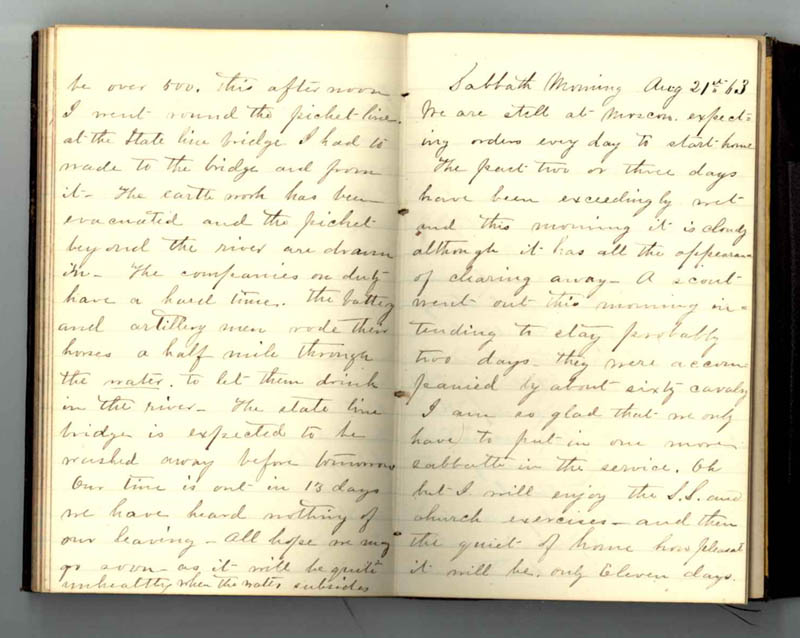 be over 500. This afternoon
I went round the picket line.
at the State line bridge I had to
wade to the bridge and from
it - The earth work has been
evacuated and the picket
beyond the river are drawn
in - The companies on duty
have a hard time. The battery
and artillery men rode their
horses a half mile through
the water. to let them drink
in the river - The state line
bridge is expected to be
washed away before tomorrow
Our time is out in 13 days
we have heard nothing of
our leaving - All hope we may
go soon - as it will be quite
unhealthy when the water subsides
Sabbath Morning Aug 21st 63
We are still at Moscow. expect=
ing orders every day to start home
The past two or three days
have been exceedingly wet
and this morning it is cloudy
although it has all the appearan
of clearing away - A scout
went out this morning in=
tending to stay probably
two days. they were accom
panied by about sixty cavalry
I am so glad that we only
have to put in one more
sabbath in the service. Oh
but I will enjoy the S.S. and
church exercises - and then
the quiet of home how pleasat
it will be. only Eleven days.